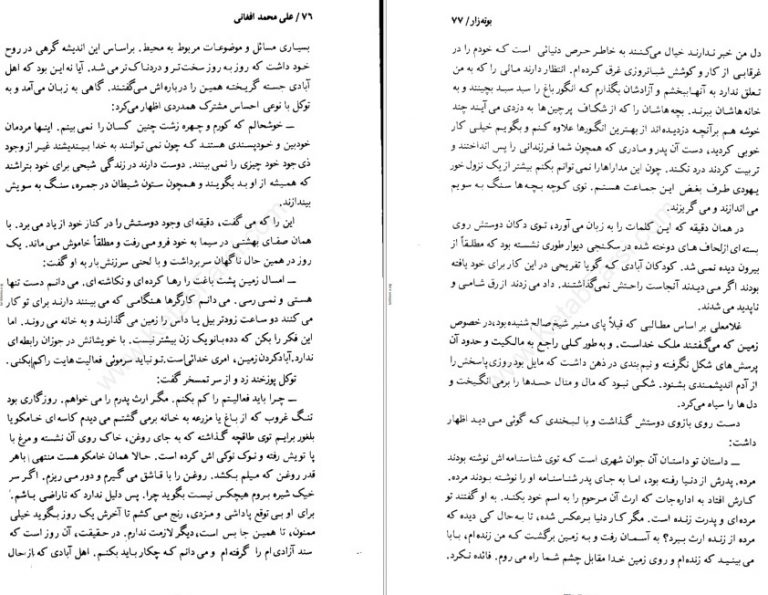 ۷۶ / علی محمد افغانی
بسیاری مسائل و موضوعات مربوط به محیط. براساس این اندیشه گرهی در روح
خود داشت که روز به روز سخت‌تر و دردناک‌تر می‌شد. آیا نه این بود که اهل
آبادی جسته گریخته همین را درباره‌اش می‌گفتند. گاهی به زبان می‌آمد و به
توکل با نوعی احساس مشترک همدردی اظهار می‌کرد:
ــ خوشحالم که کورم و چهره زشت چنین کسان را نمی‌بینم. اینها مردمان
خودبین و خودپسندی هستند که چون نمی‌توانند به خدا بیندیشند غیر از وجود
ذی‌جود خود چیزی را نمی‌بینند. دوست دارند در زندگی شبحی برای خود بتراشند
که همیشه از او بد بگویند و همچون ستون شیطان در جمره، سنگ به سویش
بیندازند.
این را که می‌گفت، دقیقه‌ای وجود دوستش را در کنار خود از یاد می‌برد. با
همان صفای بهشتی در سیما به خود فرو می‌رفت و مطلقاً خاموش می‌ماند. یک
روز در همین حال ناگهان سر برداشت و با لحنی سرزنش‌بار به او گفت:
ــ امسال زمین پشت باغت را رها کرده‌ای و نکاشته‌ای. می‌دانم دست تنها
هستی و نمی‌رسی. می‌دانم کارگرها هنگامی که می‌بینند دارند برای تو کار
می‌کنند دو ساعت زودتر بیل یا داس را زمین می‌گذارند و به خانه می‌روند. اما
این فکر را بکن که ده‌ده بانو یک زن بیشتر نیست. با خویشانش در جوزان رابطه‌ای
ندارد. آباد کردن زمین، امری خدائی است. تو نباید سرموئی فعالیت‌هایت را کم بکنی.
توکل پوزخند زد و از سر تمسخر گفت:
ــ چرا باید فعالیتم را کم بکنم. مگر ارث پدرم را می‌خواهم. روزگاری بود
تنگ غروب که از باغ یا مزرعه به خانه برمی‌گشتم می‌دیدم کاسه‌ای خامکو یا
بلغور برایم توی طاقچه گذاشته که به جای روغن، خاک روی آن نشسته و مرغ با
پا تویش رفته و نوک نوکی‌اش کرده است. حالا همان خامکو هست منتهی با هر
قدر روغن که میلم بکشد. روغن را با قاشق می‌گیرم و دور می‌ریزم. اگر سر
خیک شیره بروم هیچکس نیست بگوید چرا. پس دلیل ندارد که ناراضی باشم.
برای او بی توقع پاداشی و مزدی، رنج می‌کشم تا آخرش یک روز بگوید خیلی
ممنون، تا همین جا بس است، دیگر لازمت ندارم. در حقیقت، آن روز است که
سند آزادی‌ام را گرفته‌ام و می‌دانم که چکار باید بکنم. اهل آبادی که از حال
بوته‌زار / ۷۷
دل من خبر ندارند خیال می‌کنند به خاطر حرص دنیائی است که خودم را در
غرقابی از کار و کوشش شبانروزی غرق کرده‌ام. انتظار دارند مالی را که به من
تعلق ندارد به آنها ببخشم و آزادشان بگذارم که انگور باغ را سبد سبد بچینند و به
خانه‌هاشان ببرند. بچه‌هاشان را که از شکاف پرچین‌ها به دزدی می‌آیند چند
خوشه هم بر آنچه دزدیده‌اند از بهترین انگورها علاوه کنم و بگویم خیلی کار
خوبی کردید، دست آن پدر و مادری که همچون شما فرزندانی را پس انداختند و
تربیت کردند درد نکند. چون این مداراها را نمی‌توانم بکنم بیشتر از یک نزول خور
یهودی طرف بغض این جماعت هستم. توی کوچه بچه‌ها سنگ به سویم
می‌اندازند و می‌گریزند.
در همان دقیقه که این کلمات را به زبان می‌آورد، توی دکان دوستش روی
بسته‌ای از لحاف های دوخته شده در سکنجی دیوار طوری نشسته بود که مطلقاً از
بیرون دیده نمی‌شد. کودکان آبادی که گویا تفریحی در این کار برای خود یافته
بودند اگر می‌دیدند آنجاست راحتش نمی‌گذاشتند. داد می‌زدند ازرق شامی و
ناپدید می‌شدند.
غلامعلی بر اساس مطالبی که قبلاً پای منبر شیخ صالح شنیده بود، در خصوص
زمین که می‌گفتند ملک خداست، و به طور کلی راجع به مالکیت و حدود آن
پرسش های شکل نگرفته و نیم‌بندی در ذهن داشت که مایل بود روزی پاسخش را
از آدم اندیشمندی بشنود. شکی نبود که مال و منال حسدها را برمی‌انگیخت و
دل‌ها را سیاه می‌کرد.
دست روی بازوی دوستش گذاشت و با لبخندی که گوئی می‌دید اظهار
داشت:
ــ داستان تو داستان آن جوان شهری است که توی شناسنامه‌اش نوشته بودند
مرده. پدرش از دنیا رفته بود، اما به جای پدر شناسنامه او را نوشته بودند مرده.
کارش افتاد به اداره‌جات که ارث آن مرحوم را به اسم خود بکند. به او گفتند تو
مرده‌ای و پدرت زنده است. مگر کار دنیا برعکس شده، تا به حال کی دیده که
مرده از زنده ارث ببرد؟ به آسمان رفت و به زمین برگشت که من زنده‌ام، بابا
می‌بینید که زنده‌ام و روی زمین خدا مقابل چشم شما راه می‌روم. فائده نکرد.